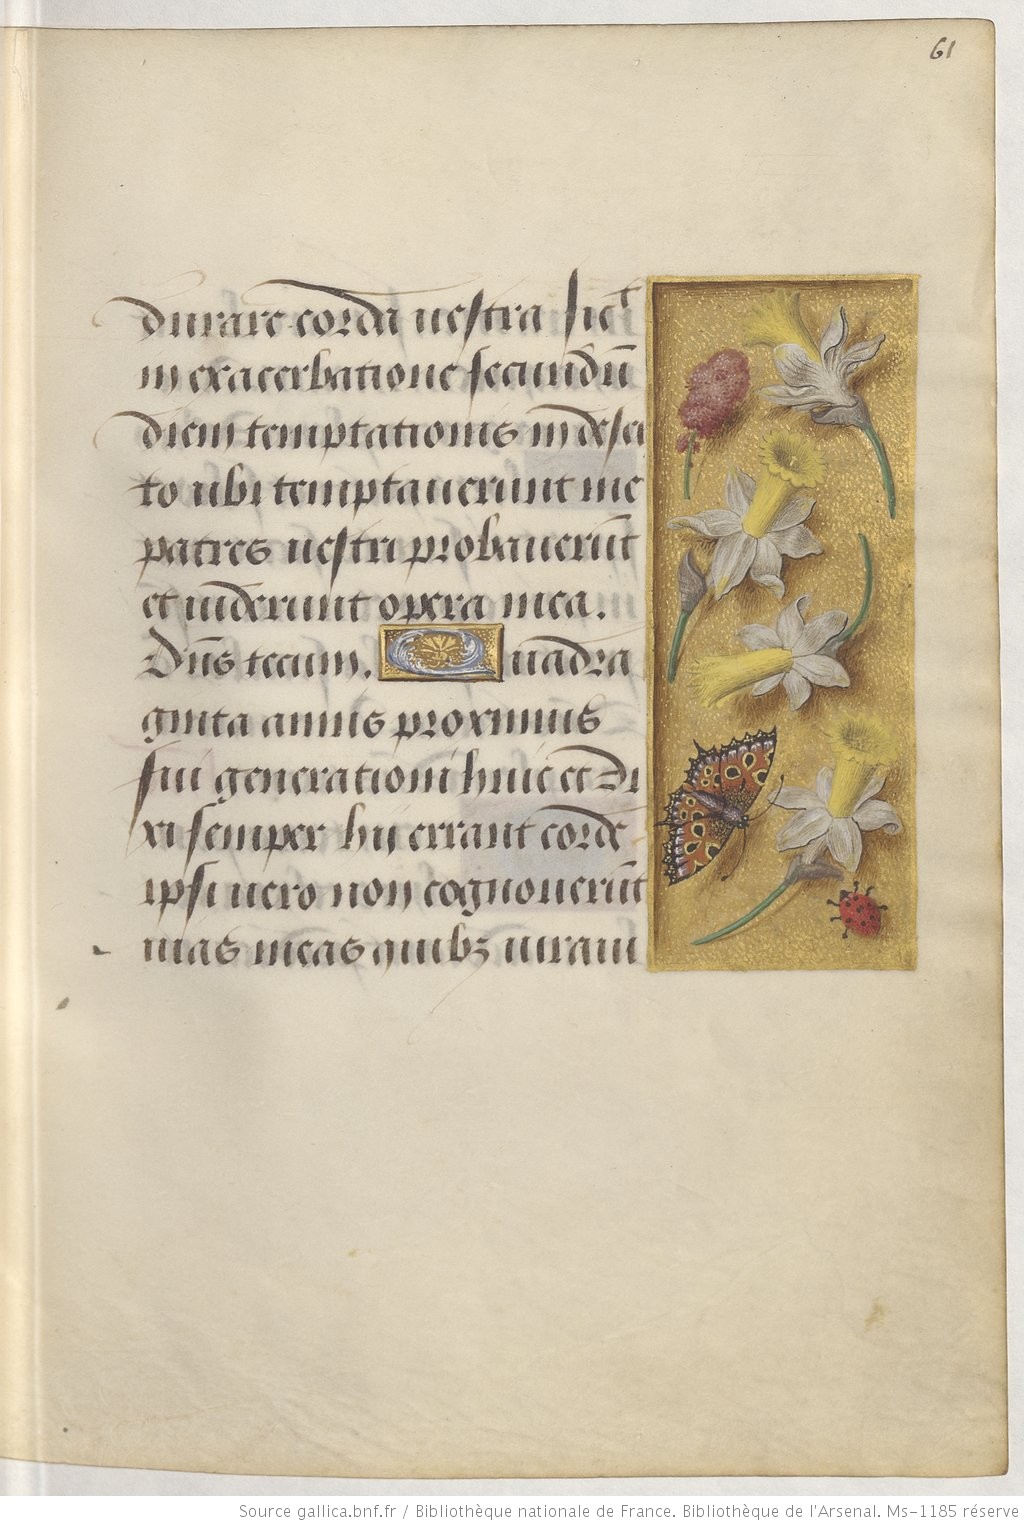 61
durare corda vestra sicᵗ
in exacerbatione secundū
diem temptationis in dese
to ubi temptaverunt me
patres vestri probaverūt
et viderunt opera mea.
Dn̄s tecum. Quadra
ginta annis proximus
fui generationi huic et di
xi semper hij errant corde
ipsi vero non cognoverūt
vias meas quibꝫ iuravi
Source gallica.bnf.fr / Bibliothèque nationale de France. Bibliothèque de l'Arsenal. Ms-1185 réserve